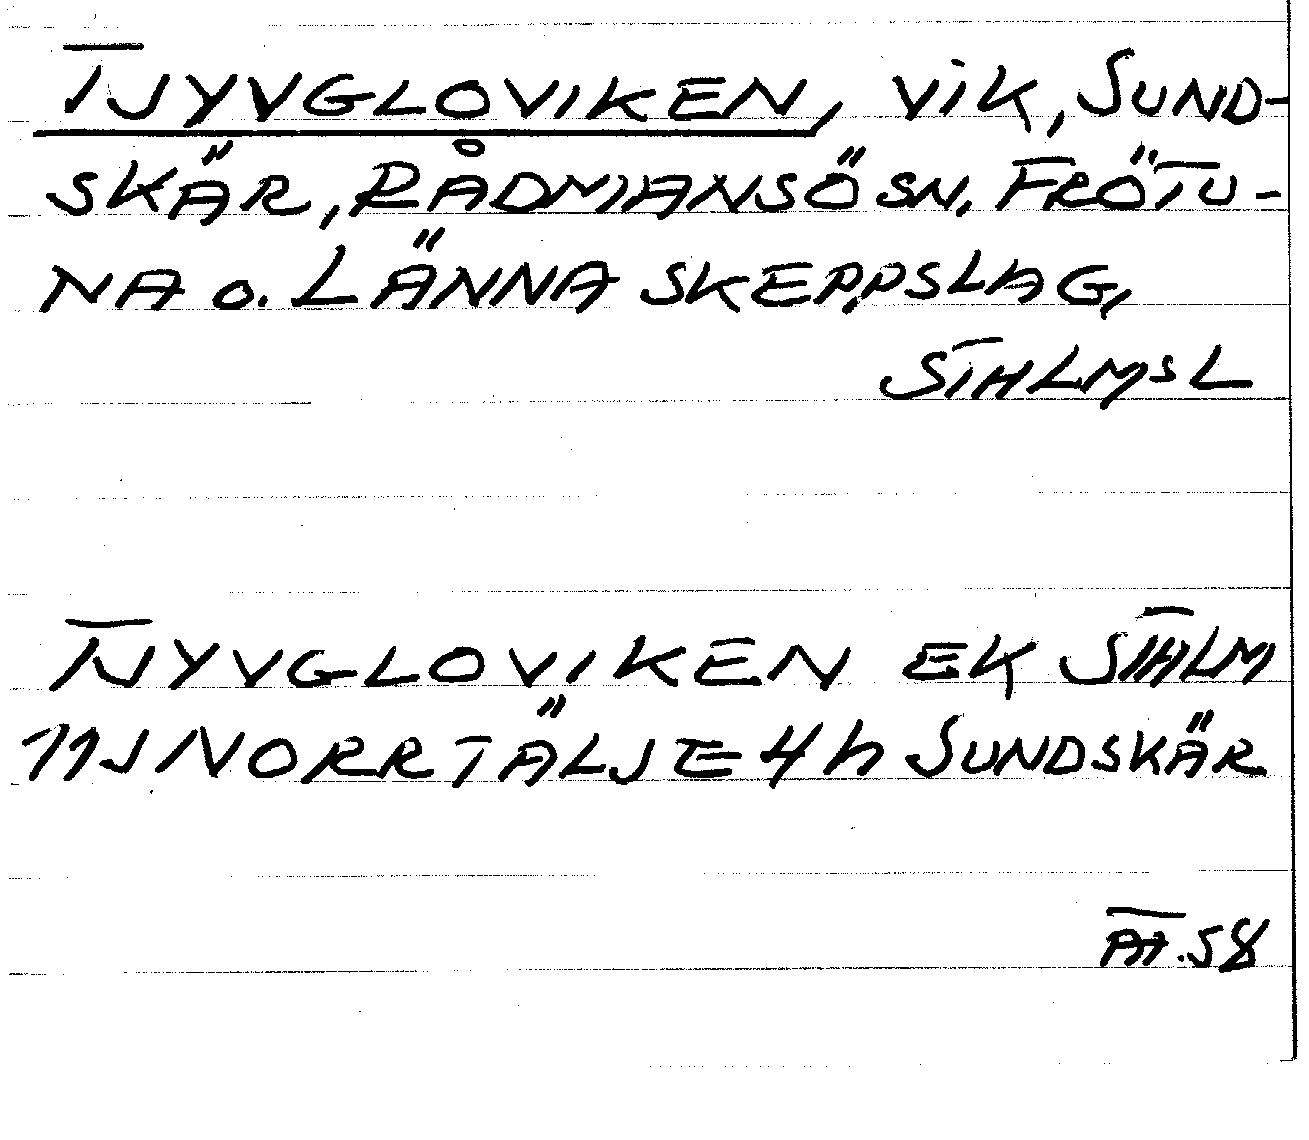 TJYVGLOVIKEN, VIK, SUND-
SKÄR, RÅDMANSÖ SN, FRÖTU-
NA o. LÄNNA SKEPPSLAG,
STHLMS L
TJYVGLOVIKEN EK STHLM
11J NORRTÄLJE 4h SUNDSKÄR
.58